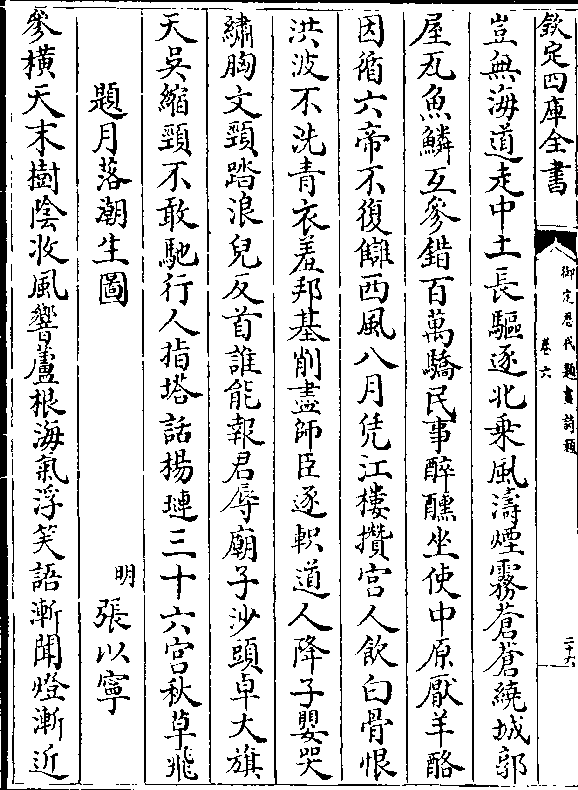 欽定四庫全書
御定歷代題畫詩類
卷六
二十六
豈無海道走中土長驅逐北乗風濤煙霧蒼蒼繞城郭
屋瓦魚鱗互參錯百萬驕民事醉醺坐使中原厭羊酪
因循六帝不復讎西風八月凭江樓攢宫人飲白骨恨
洪波不洗青衣羞邦基削盡師臣逐軹道人降子嬰哭
繡胸文頸踏浪兒反首誰能報君辱廟子沙頭卓大旗
天吳縮頸不敢馳行人指塔話楊璉三十六宫秋草飛
題月落潮生圖
明 張以寧
參横天末樹陰收風響蘆根海氣浮笑語漸聞燈漸近